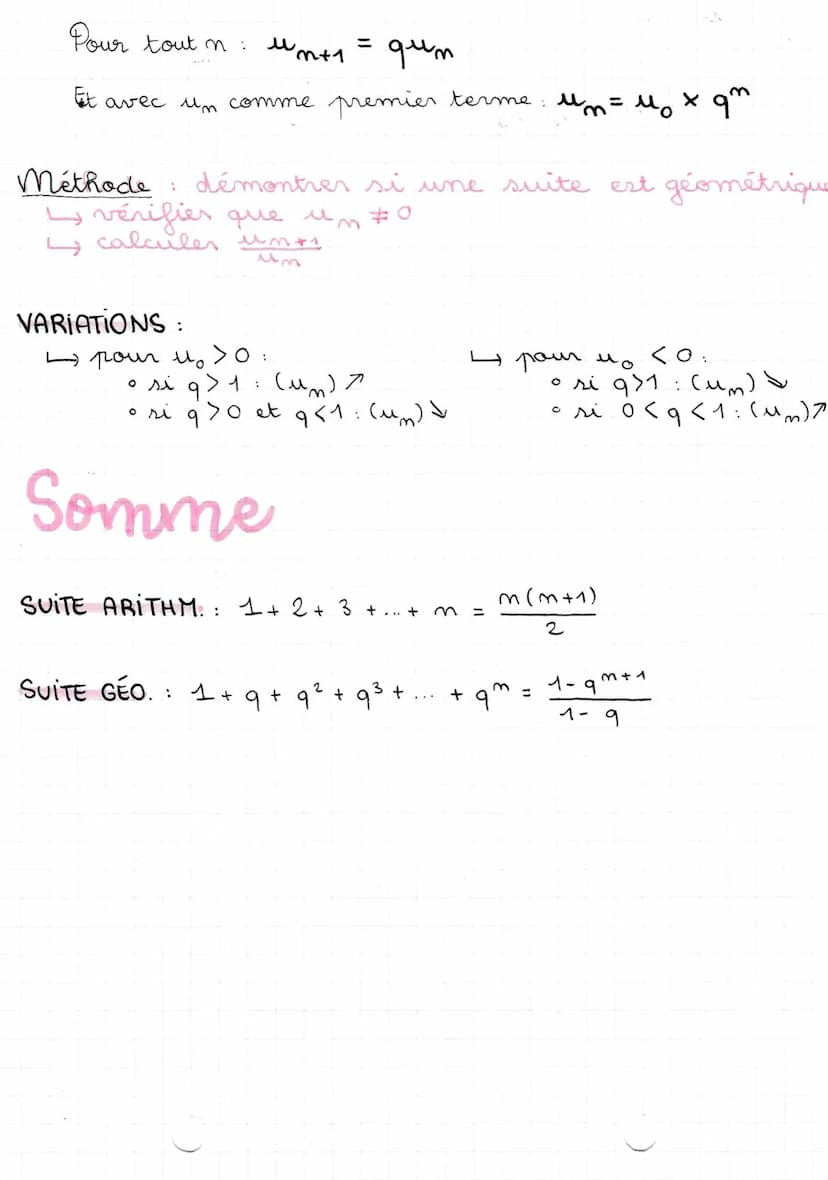 Pour tout n : uₙ₊₁ = quₙ
Et avec uₙ comme premier terme : uₙ = u₀ × qⁿ
Méthode : démontrer si une suite est géométrique
↳ vérifier que uₙ ≠ 0
↳ calculer uₙ₊₁/uₙ
VARIATIONS :
↳ pour u₀ > 0 :
• si q > 1 : (uₙ) ↗
• si q > 0 et q < 1 : (uₙ) ↘
↳ pour u₀ < 0 :
• si q > 1 : (uₙ) ↘
• si 0 < q < 1 : (uₙ) ↗
Somme
SUITE ARITHM. : 1 + 2 + 3 + ... + n = n(n+1)/2
SUITE GÉO. : 1 + q + q² + q³ + ... + qⁿ = (1 - qⁿ⁺¹)/(1 - q)